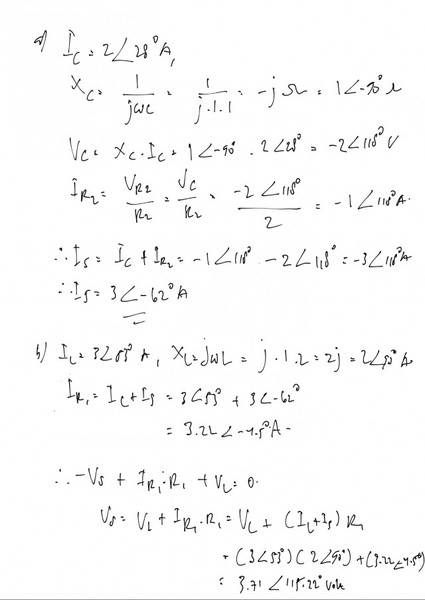 a) I_C = 2∠28° A,
X_C = 1/jωC = 1/j.1.1 = -j Ω = 1∠-90° Ω
V_C = X_C . I_C = 1∠-90° . 2∠28° = -2∠118° V
I_R2 = V_R2/R_2 = V_C/R_2 = -2∠118°/2 = -1∠118° A.
∴ I_S = I_C + I_R2 = -1∠118° - 2∠118° = -3∠118° A
∴ I_S = 3∠-62° A
b) I_L = 3∠53° A, X_L = jωL = j . 1 . 2 = 2j = 2∠90° A
I_R1 = I_L + I_S = 3∠53° + 3∠-62°
= 3.22∠-4.5° A -
∴ -V_S + I_R1 . R_1 + V_L = 0.
V_S = V_L + I_R1 . R_1 = V_L + (I_L + I_S) R_1
= (3∠53°)(2∠90°) + (3.22∠4.5°)
= 3.71∠115.22° Volt